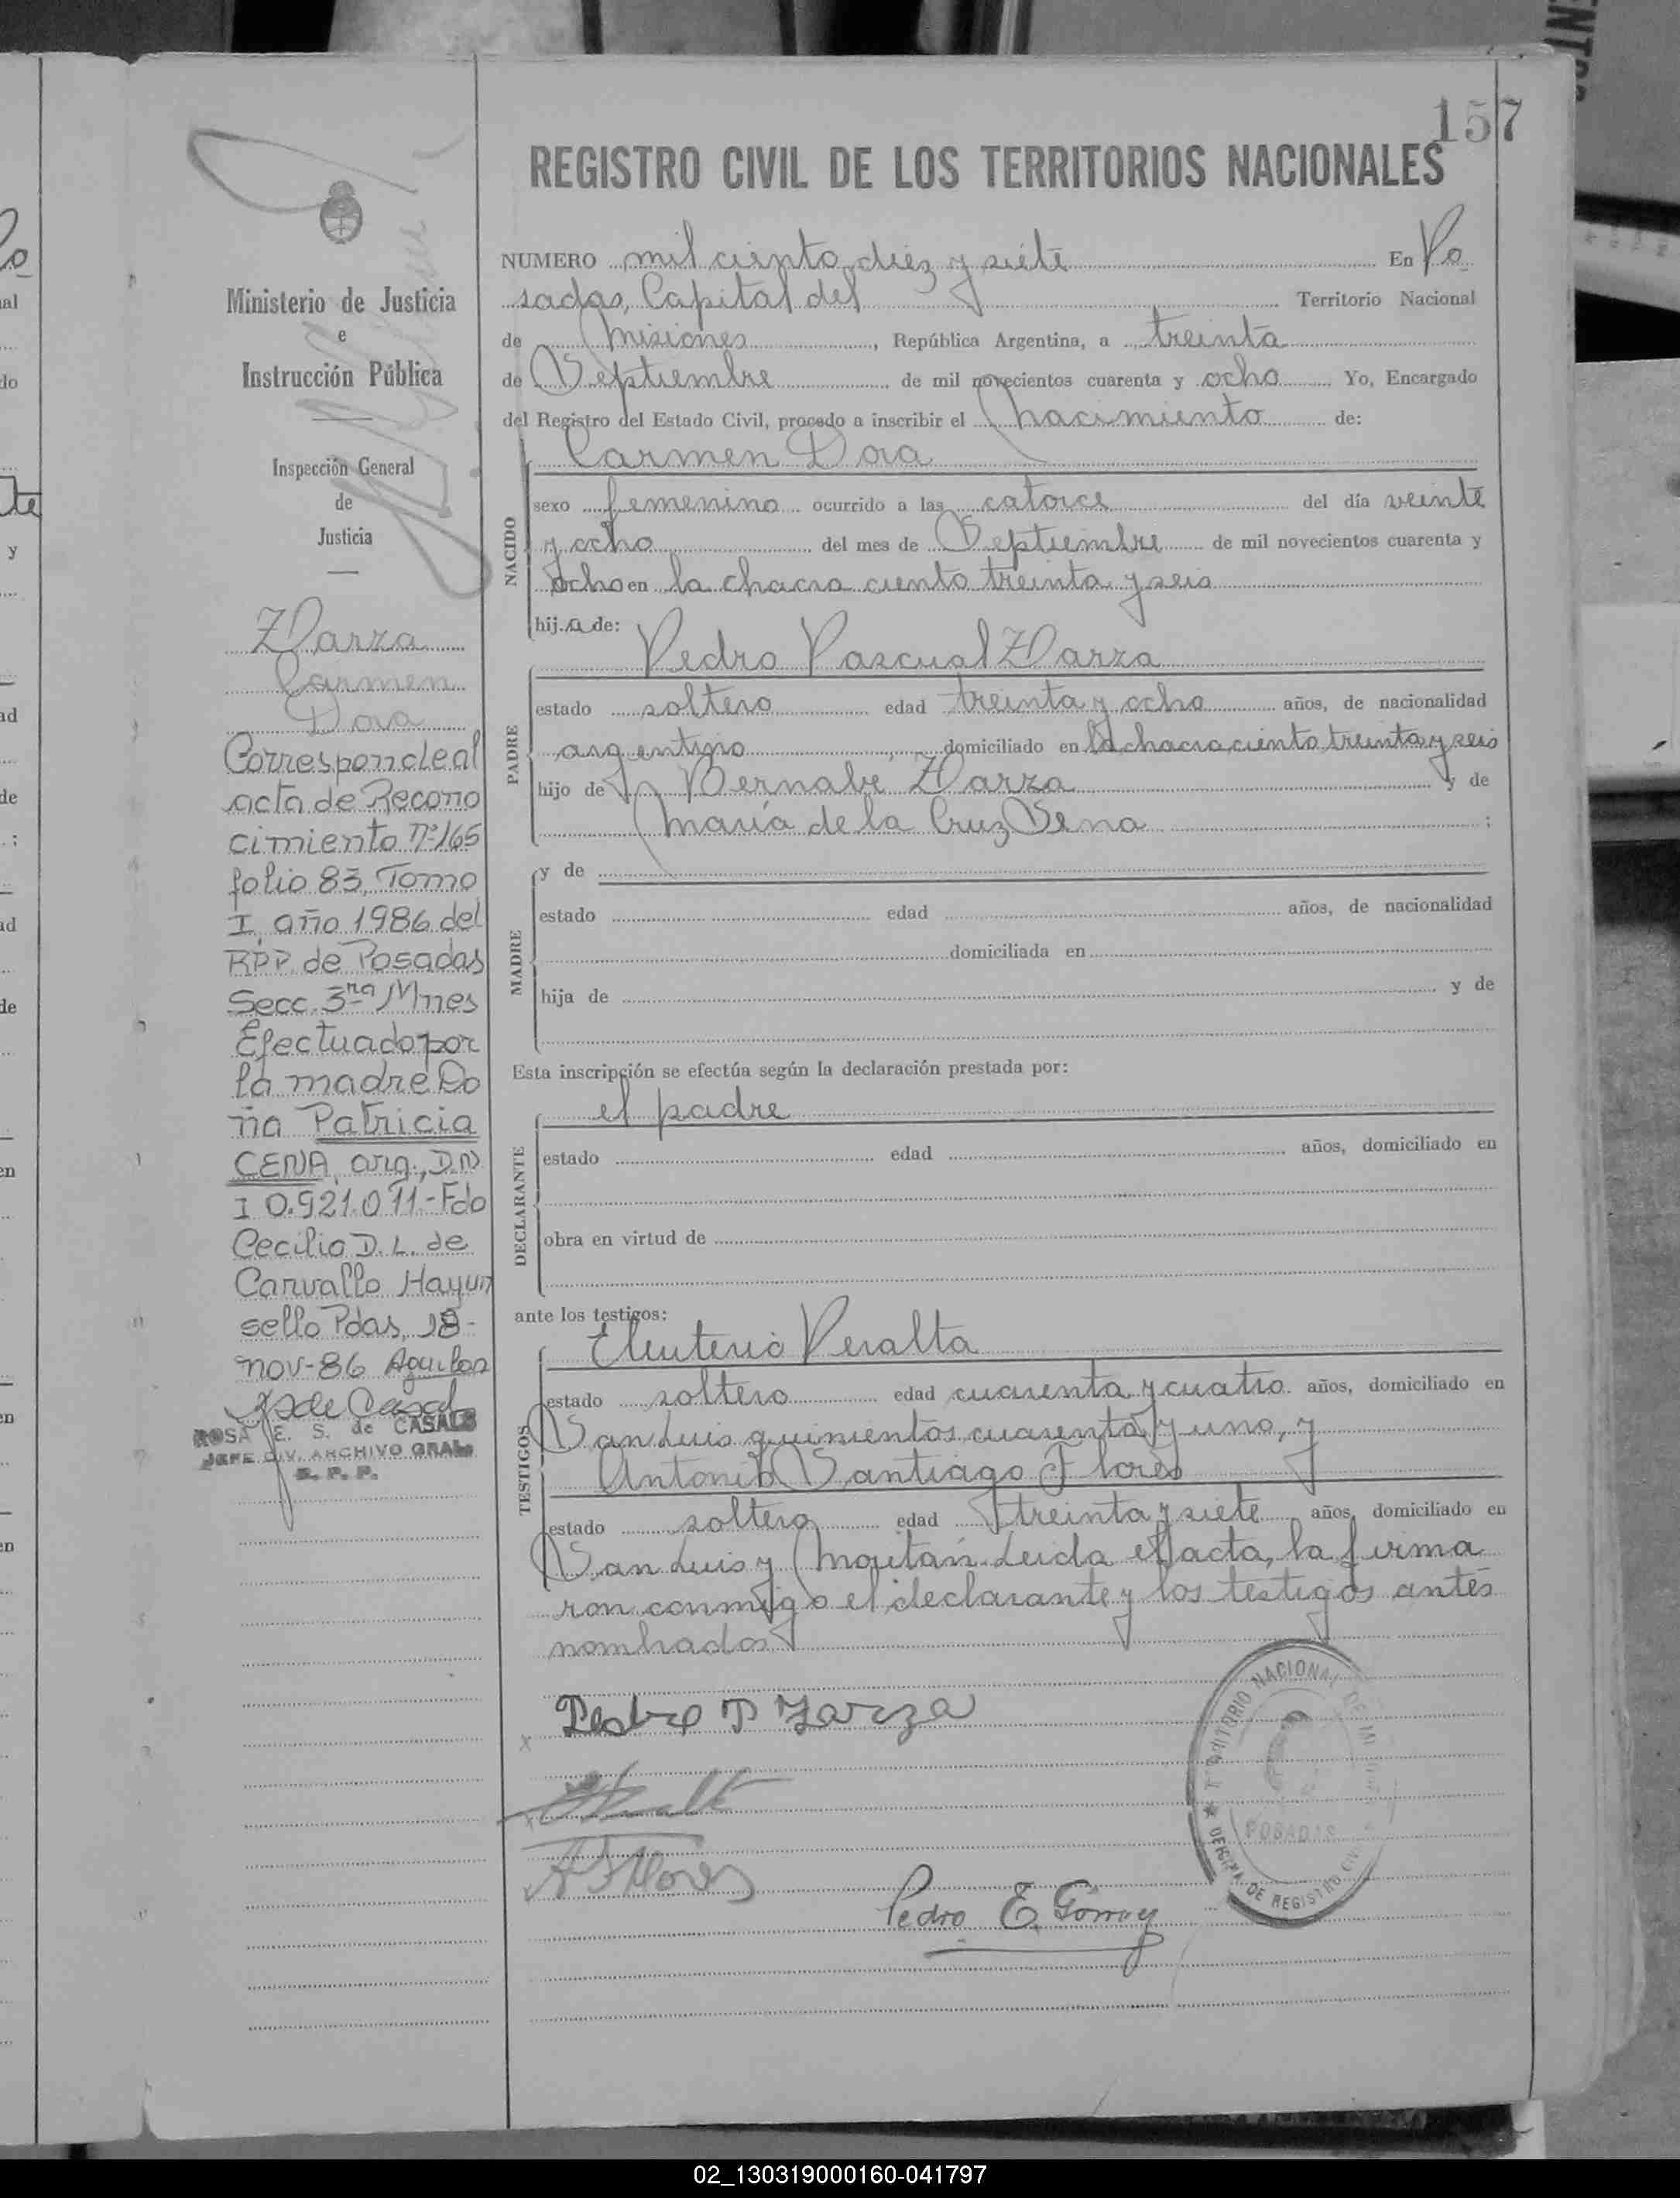 157
REGISTRO CIVIL DE LOS TERRITORIOS NACIONALES
Ministerio de Justicia
e
Instrucción Pública
Inspección General
de
Justicia
Zarza
Carmen
Dora
Corresponde al
acta de Recono
cimiento nº 165
folio 83, Tomo
I, año 1986 del
RPP. de Posadas
Secc. 3ra Mnes
Efectuado por
la madre Do
ña Patricia
CENA, arg., D.N
I 0.921.011-Fdo
Cecilio D. L. de
Carvallo Hay un
sello Pdas, 18-
nov-86 Aguilar
ROSA E. S. de CASALS
JEFE DIV. ARCHIVO GRAL.
R. P. P.
NUMERO mil ciento diez y siete En Po
sadas, Capital del Territorio Nacional
de Misiones, República Argentina, a treinta
de Septiembre de mil novecientos cuarenta y ocho Yo, Encargado
del Registro del Estado Civil, procedo a inscribir el Nacimiento de:
Carmen Dora
NACIDO
sexo femenino ocurrido a las catorce del día veinte
y ocho del mes de Septiembre de mil novecientos cuarenta y
ocho en la chacra ciento treinta y seis
hij.a de:
Pedro Pascual Zarza
PADRE
estado soltero edad treinta y ocho años, de nacionalidad
argentino, domiciliado en la chacra ciento treinta y seis
hijo de Bernabe Zarza y de
María de la Cruz Sena ;
y de
MADRE
estado edad años, de nacionalidad
domiciliada en
hija de y de
Esta inscripción se efectúa según la declaración prestada por:
el padre
DECLARANTE
estado edad años, domiciliado en
obra en virtud de
ante los testigos:
Eleuterio Peralta
TESTIGOS
estado soltero edad cuarenta y cuatro años, domiciliado en
San Luis quinientos cuarenta y uno, y
Antonio Santiago Flores
estado soltero edad treinta y siete años, domiciliado en
San Luis y Moritán. Leida el acta, la firma
ron conmigo el declarante y los testigos antes
nombrados
x Pedro P Zarza
A S Flores
Pedro E. Gómez
TERRITORIO NACIONAL DE MISIONES
POSADAS
DE REGISTRO
02_130319000160-041797